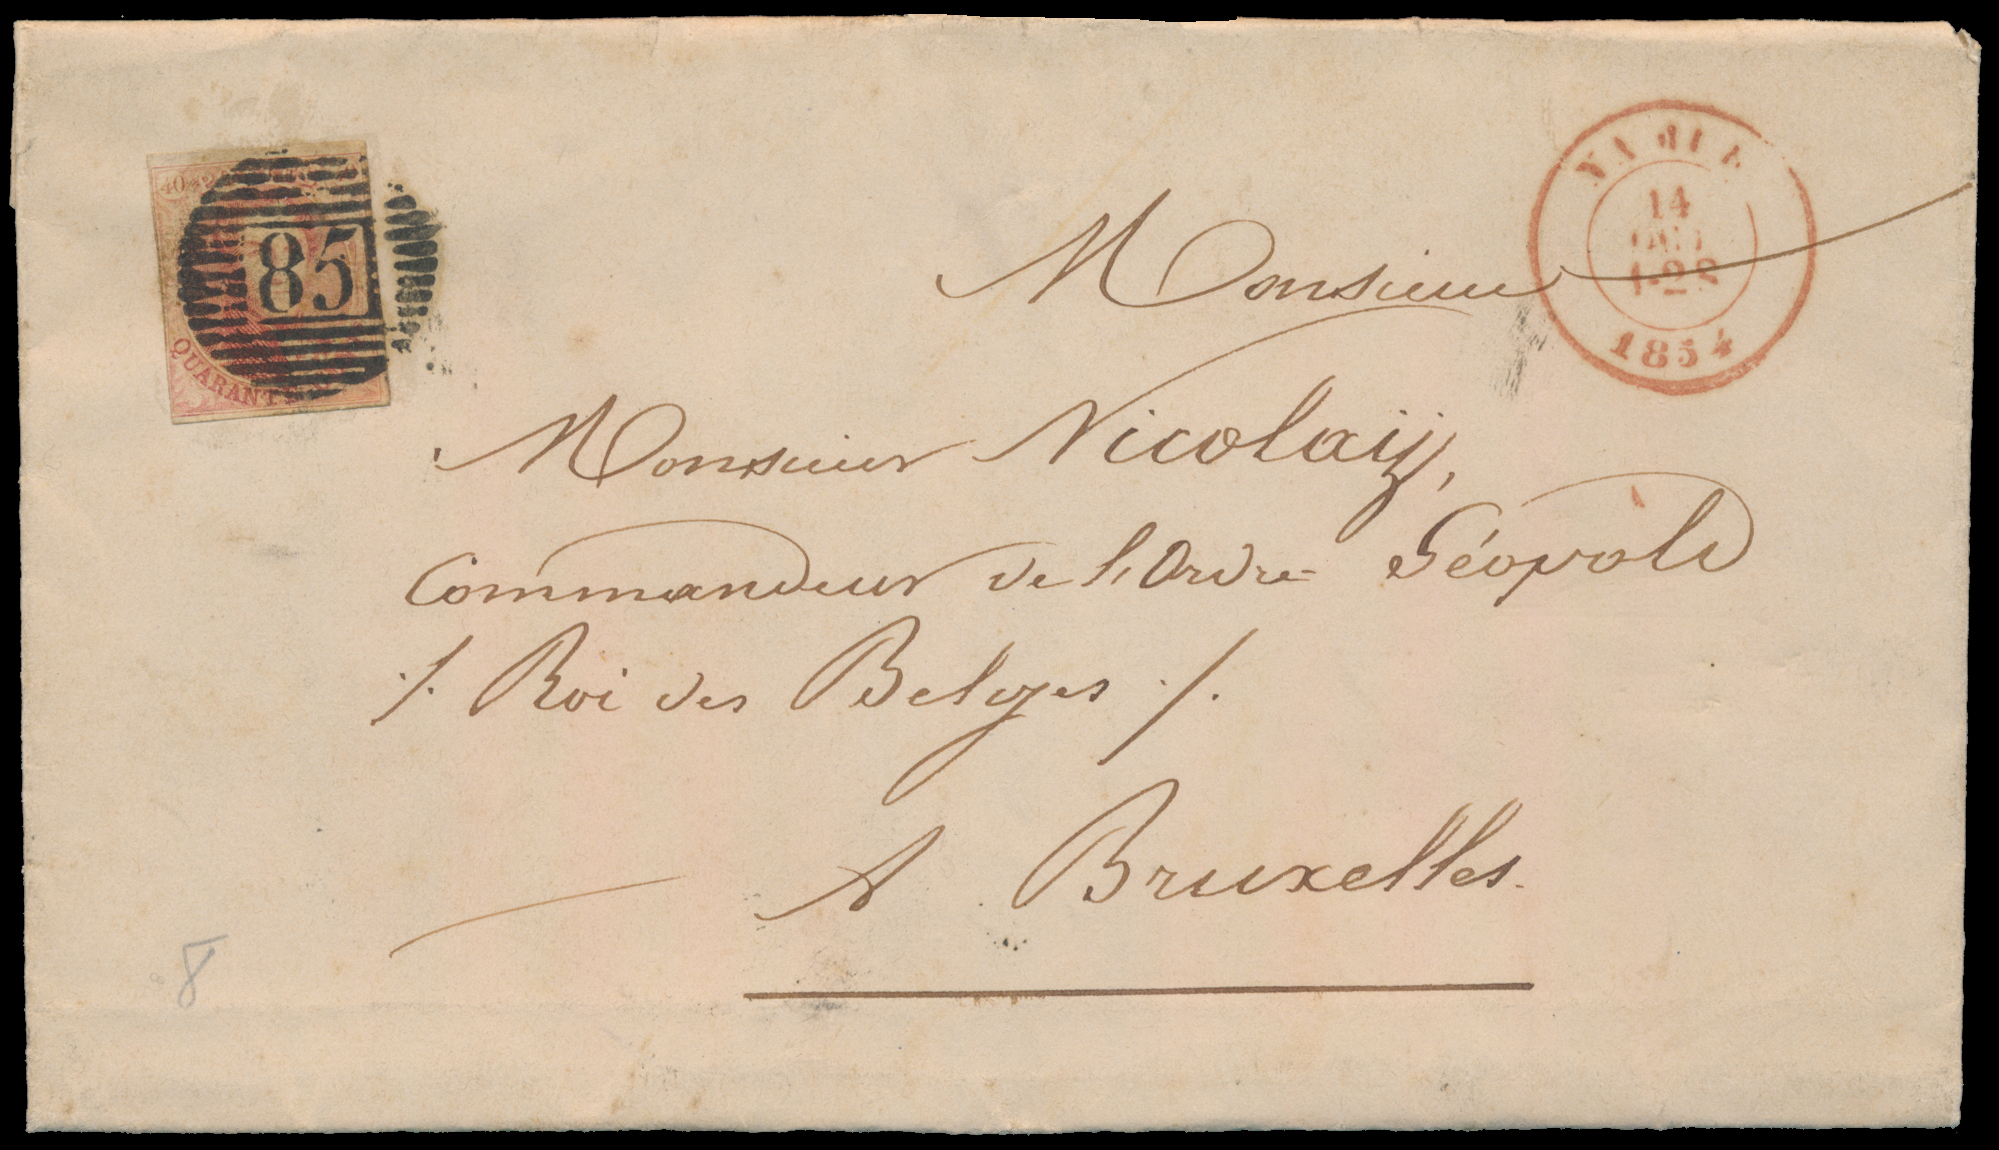 40
85
QUARANT
NAMUR
14
1-2S
1854
Monsieur
Monsieur Nicolaÿ,
Commandeur de l'Ordre Léopold
./. Roi des Belges ./.
A Bruxelles.
8